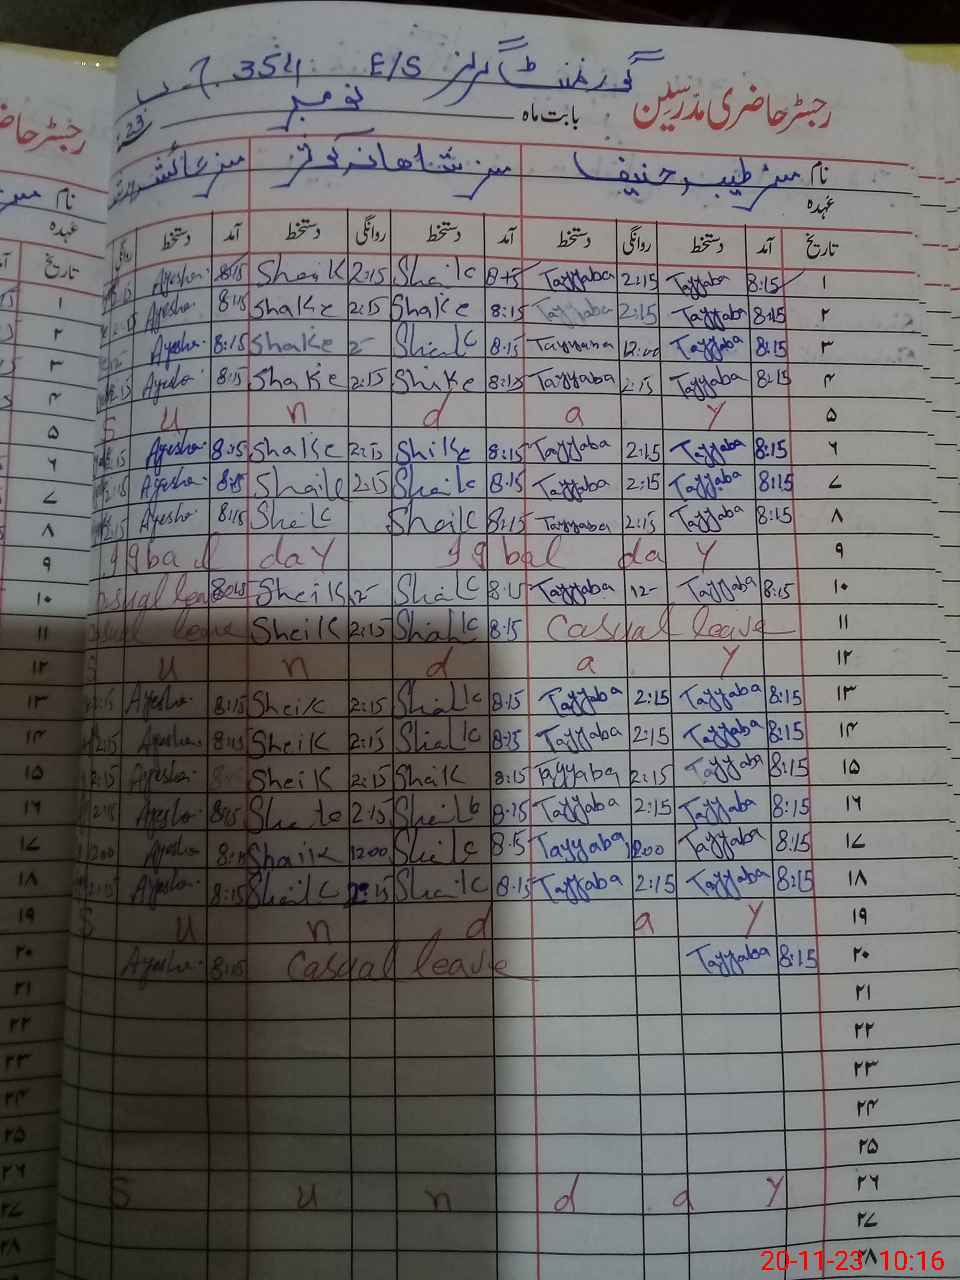 گورنمنٹ گرلز E/S 354
رجسٹر حاضری مدرسین بابت ماہ نومبر 23
نام مسز طیبہ حنیف مسز شاھانہ کوثر مسز عائشہ
عہدہ
تاریخ آمد دستخط روانگی دستخط آمد دستخط روانگی دستخط آمد دستخط
۱ 8:15 Tayyaba 2:15 Tayyaba 8:15 Shaik 2:15 Sheik 8:15 Ayesha
۲ 8:15 Tayyaba 2:15 Tayyaba 8:15 Shake 2:15 Shake 8:15 Ayesha
۳ 8:15 Tayyaba 12:00 Tayyaba 8:15 Shaik Shake 8:15 Ayesha
۴ 8:15 Tayyaba 2:15 Tayyaba 8:15 Shike 2:15 Shake 8:15 Ayesha
۵ S u n d a y
۶ 8:15 Tayyaba 2:15 Tayyaba 8:15 Shike 2:15 Shake 8:15 Ayesha
۷ 8:15 Tayyaba 2:15 Tayyaba 8:15 Shaik 2:15 Shaik 8:15 Ayesha
۸ 8:15 Tayyaba 2:15 Tayyaba 8:15 Shaik Sheik 8:15 Ayesha
۹ Iqbal day Iqbal day
۱۰ 8:15 Tayyaba 12- Tayyaba 8:15 Shaik 12- Sheik
۱۱ Casual leave 8:15 Shaik 2:15 Sheik leave
۱۲ S u n d a y
۱۳ 8:15 Tayyaba 2:15 Tayyaba 8:15 Shaik 2:15 Sheik 8:15 Ayesha 2:15
۱۴ 8:15 Tayyaba 2:15 Tayyaba 8:15 Shaik 2:15 Sheik 8:15 Ayesha 2:15
۱۵ 8:15 Tayyaba 2:15 Tayyaba 8:15 Shaik 2:15 Sheik Ayesha 2:15
۱۶ 8:15 Tayyaba 2:15 Tayyaba 8:15 Shaik 2:15 8:15 Ayesha 2:15
۱۷ 8:15 Tayyaba 1200 Tayyaba 8:15 Shaik 1200 Shaik 8:15 Ayesha 1200
۱۸ 8:15 Tayyaba 2:15 Tayyaba 8:15 Shaik 2:15 Shaik 8:15 Ayesha 2:15
۱۹ S u n d a y
۲۰ 8:15 Tayyaba Casual leave 8:15 Ayesha
۲۱
۲۲
۲۳
۲۴
۲۵
۲۶ S u n d a y
۲۷
۲۸
20-11-23 10:16
رجسٹر حا
نام
عہدہ
تاریخ
۱
۲
۳
۴
۵
۶
۷
۸
۹
۱۰
۱۱
۱۲
۱۳
۱۴
۱۵
۱۶
۱۷
۱۸
۱۹
۲۰
۲۱
۲۲
۲۳
۲۴
۲۵
۲۶
۲۷
۲۸